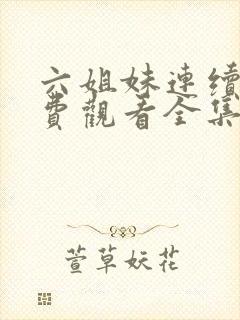 六姐妹連續
費觀看全集
萱草妖花